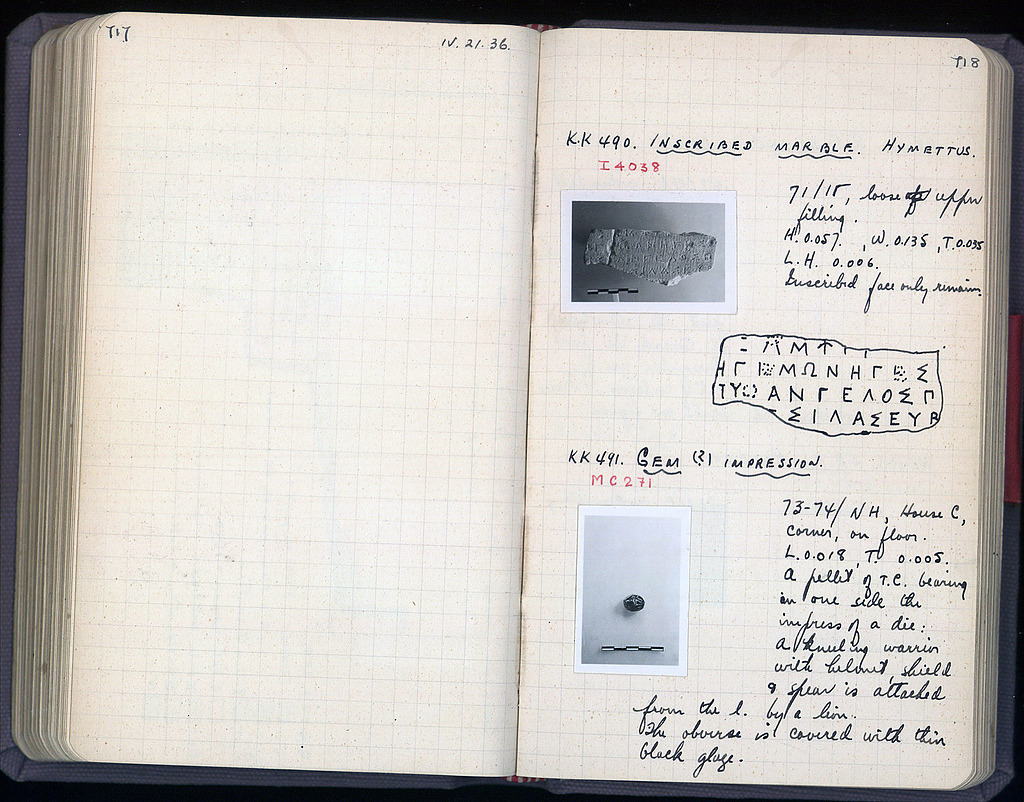 717
IV. 21. 36.
718
KK 490. INSCRIBED MARBLE. HYMETTUS.
I 4038
71/ΙΓ, loose upper
filling.
H. 0.057. , W. 0.135 , T. 0.035
L.H. 0.006.
Inscribed face only remains.
ΑΜ
ΗΓ ΜΩΝΗΓ Σ
ΤΥΟΑΝΓΕΛΟΣΓ
ΣΙΛΑΣΕΥΒ
KK 491. GEM (?) IMPRESSION.
MC 271
73-74/ NH, House C,
corner, on floor.
L. 0.018, T. 0.005.
A pellet of T.C. bearing
on one side the
impress of a die:
A kneeling warrior
with helmet, shield
& spear is attacked
from the l. by a lion.
The obverse is covered with thin
black glaze.